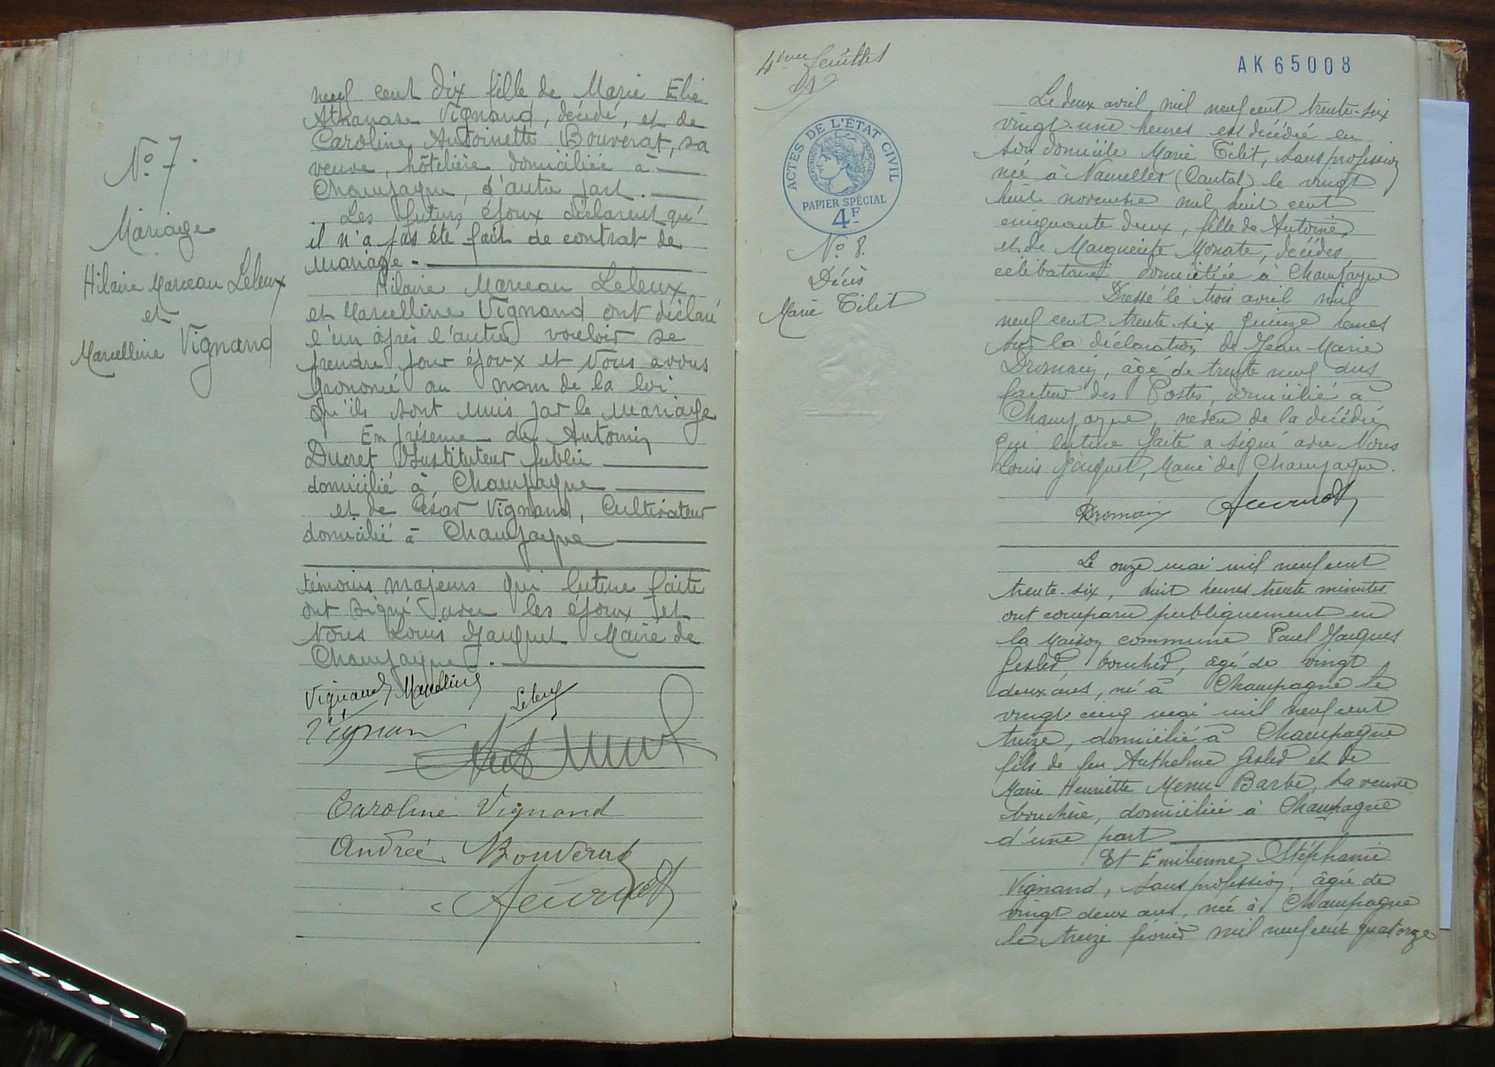 N° 7.
Mariage
Hilaire Marceau Leleux
et
Marcelline Vignand
neuf cent dix fille de Marie Elie
Athanase Vignand, décédé, et de
Caroline Antoinette Bouverat, sa
veuve, hôtelière domiciliée à
Champagne, d'autre part.
Les futurs époux déclarent qu'
il n'a pas été fait de contrat de
mariage.
Hilaire Marceau Leleux
et Marcelline Vignand ont déclaré
l'un après l'autre vouloir se
prendre pour époux et Nous avons
prononcé au nom de la loi
qu'ils sont unis par le mariage
En présence de Antonin
Ducret Instituteur public
domicilié à Champagne
et de César Vignand, Cultivateur
domicilié à Champagne
témoins majeurs qui lecture faite
ont signé avec les époux et
Nous Louis Jauquet Maire de
Champagne.
Vignand Marcelline Leleux
Vignan
Caroline Vignand
Andrée Bouverat
4ème feuillet
ACTES DE L'ETAT CIVIL
PAPIER SPÉCIAL
4F
N° 8.
Décès
Marie Tilit
AK 65008
Le deux avril, mil neuf cent trente-six
vingt-une heures est décédée en
son domicile Marie Tilit, sans profession
née à (Cantal) le vingt
huit novembre mil huit cent
cinquante deux, fille de Antoine,
et de Marguerite Monate, décédés
célibataire domiciliée à Champagne
Dressé le trois avril mil
neuf cent trente six quinze heures
sur la déclaration de Jean Marie
Dromain, âgé de trente neuf ans
facteur des Postes, domicilié à
Champagne, neveu de la décédée
qui lecture faite a signé avec Nous
Louis Jauquet, Maire de Champagne.
Dromain
Le onze mai mil neuf cent
trente-six, huit heures trente minutes
ont comparu publiquement en
la maison commune Paul Jacques
boucher, âgé de vingt
deux ans, né à Champagne le
vingt cinq mai mil neuf cent
treize, domicilié à Champagne
fils de feu Anthelme et de
Marie Henriette Menu Barbe, sa veuve
bouchère, domiciliée à Champagne
d'une part
Et Emilienne Stéphanie
Vignand, sans profession, âgée de
vingt deux ans, née à Champagne
le treize février mil neuf cent quatorze